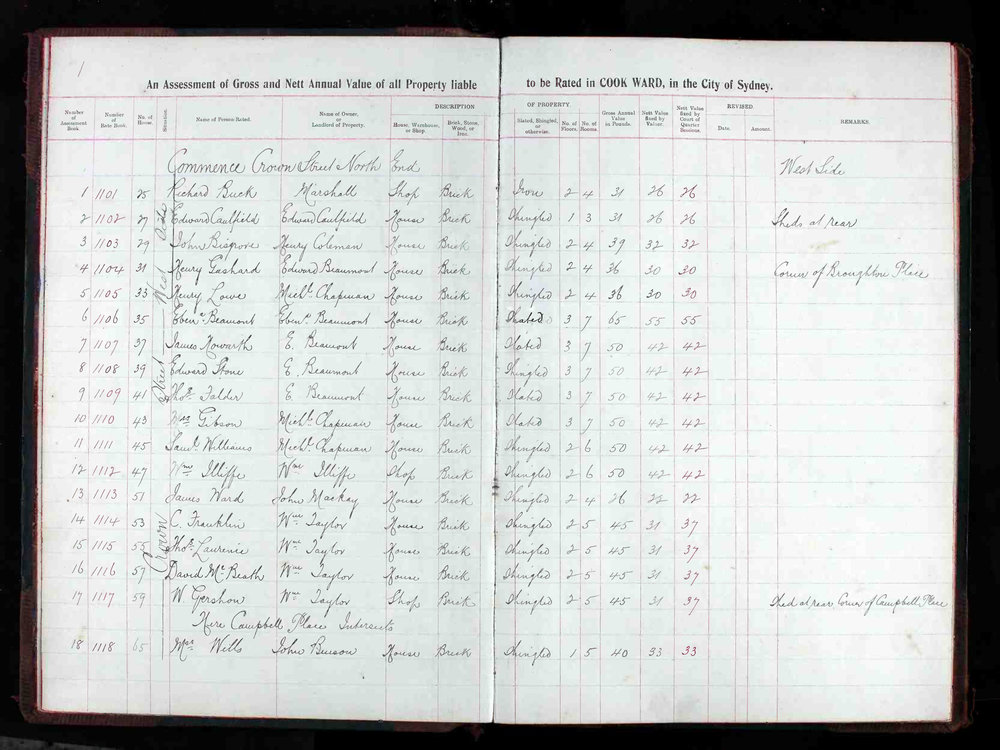 1
An Assessment of Gross and Nett Annual Value of all Property liable to be Rated in COOK WARD, in the City of Sydney.
Number of Assessment Book. Number of Rate Book. No. of House. Situation Name of Person Rated. Name of Owner, or Landlord of Property. DESCRIPTION OF PROPERTY. House, Warehouse, or Shop. Brick, Stone, Wood, or Iron. Slated, Shingled, or otherwise. No. of Floors. No. of Rooms. Gross Annual Value in Pounds. Nett Value fixed by Valuer. Nett Value fixed by Court of Quarter Sessions. REVISED Date. Amount. REMARKS.
Crown Street West Side
Commence Crown Street North End West Side
1 1101 25 Richard Buck Marshall Shop Brick Iron 2 4 31 26 26
2 1102 27 Edward Caulfield Edward Caulfield House Brick Shingled 1 3 31 26 26 Sheds at rear
3 1103 29 John Bisgrove Henry Coleman House Brick Shingled 2 4 39 32 32
4 1104 31 Henry Gashard Edward Beaumont House Brick Shingled 2 4 36 30 30 Corner of Broughton Place
5 1105 33 Henry Lowe Michl. Chapman House Brick Shingled 2 4 36 30 30
6 1106 35 Ebenr. Beaumont Ebenr. Beaumont House Brick Slated 3 7 65 55 55
7 1107 37 James Howarth E. Beaumont House Brick Slated 3 7 50 42 42
8 1108 39 Edward Stone E. Beaumont House Brick Shingled 3 7 50 42 42
9 1109 41 Thos. Falder E. Beaumont House Brick Slated 3 7 50 42 42
10 1110 43 Mrs Gibson Michl. Chapman House Brick Slated 3 7 50 42 42
11 1111 45 Saml. Williams Michl. Chapman House Brick Shingled 2 6 50 42 42
12 1112 47 Wm. Illiffe Wm. Illiffe Shop Brick Shingled 2 6 50 42 42
13 1113 51 James Ward John Mackay House Brick Shingled 2 4 26 22 22
14 1114 53 C. Franklin Wm. Taylor House Brick Shingled 2 5 45 31 37
15 1115 55 Thos. Laurence Wm. Taylor House Brick Shingled 2 5 45 31 37
16 1116 57 David Mc. Beath Wm. Taylor House Brick Shingled 2 5 45 31 37
17 1117 59 W. Gershon Wm. Taylor Shop Brick Shingled 2 5 45 31 37 Shed at rear Corner of Campbell Place
Here Campbell Place Intersects
18 1118 65 Mrs. Wills John Benson House Brick Shingled 1 5 40 33 33